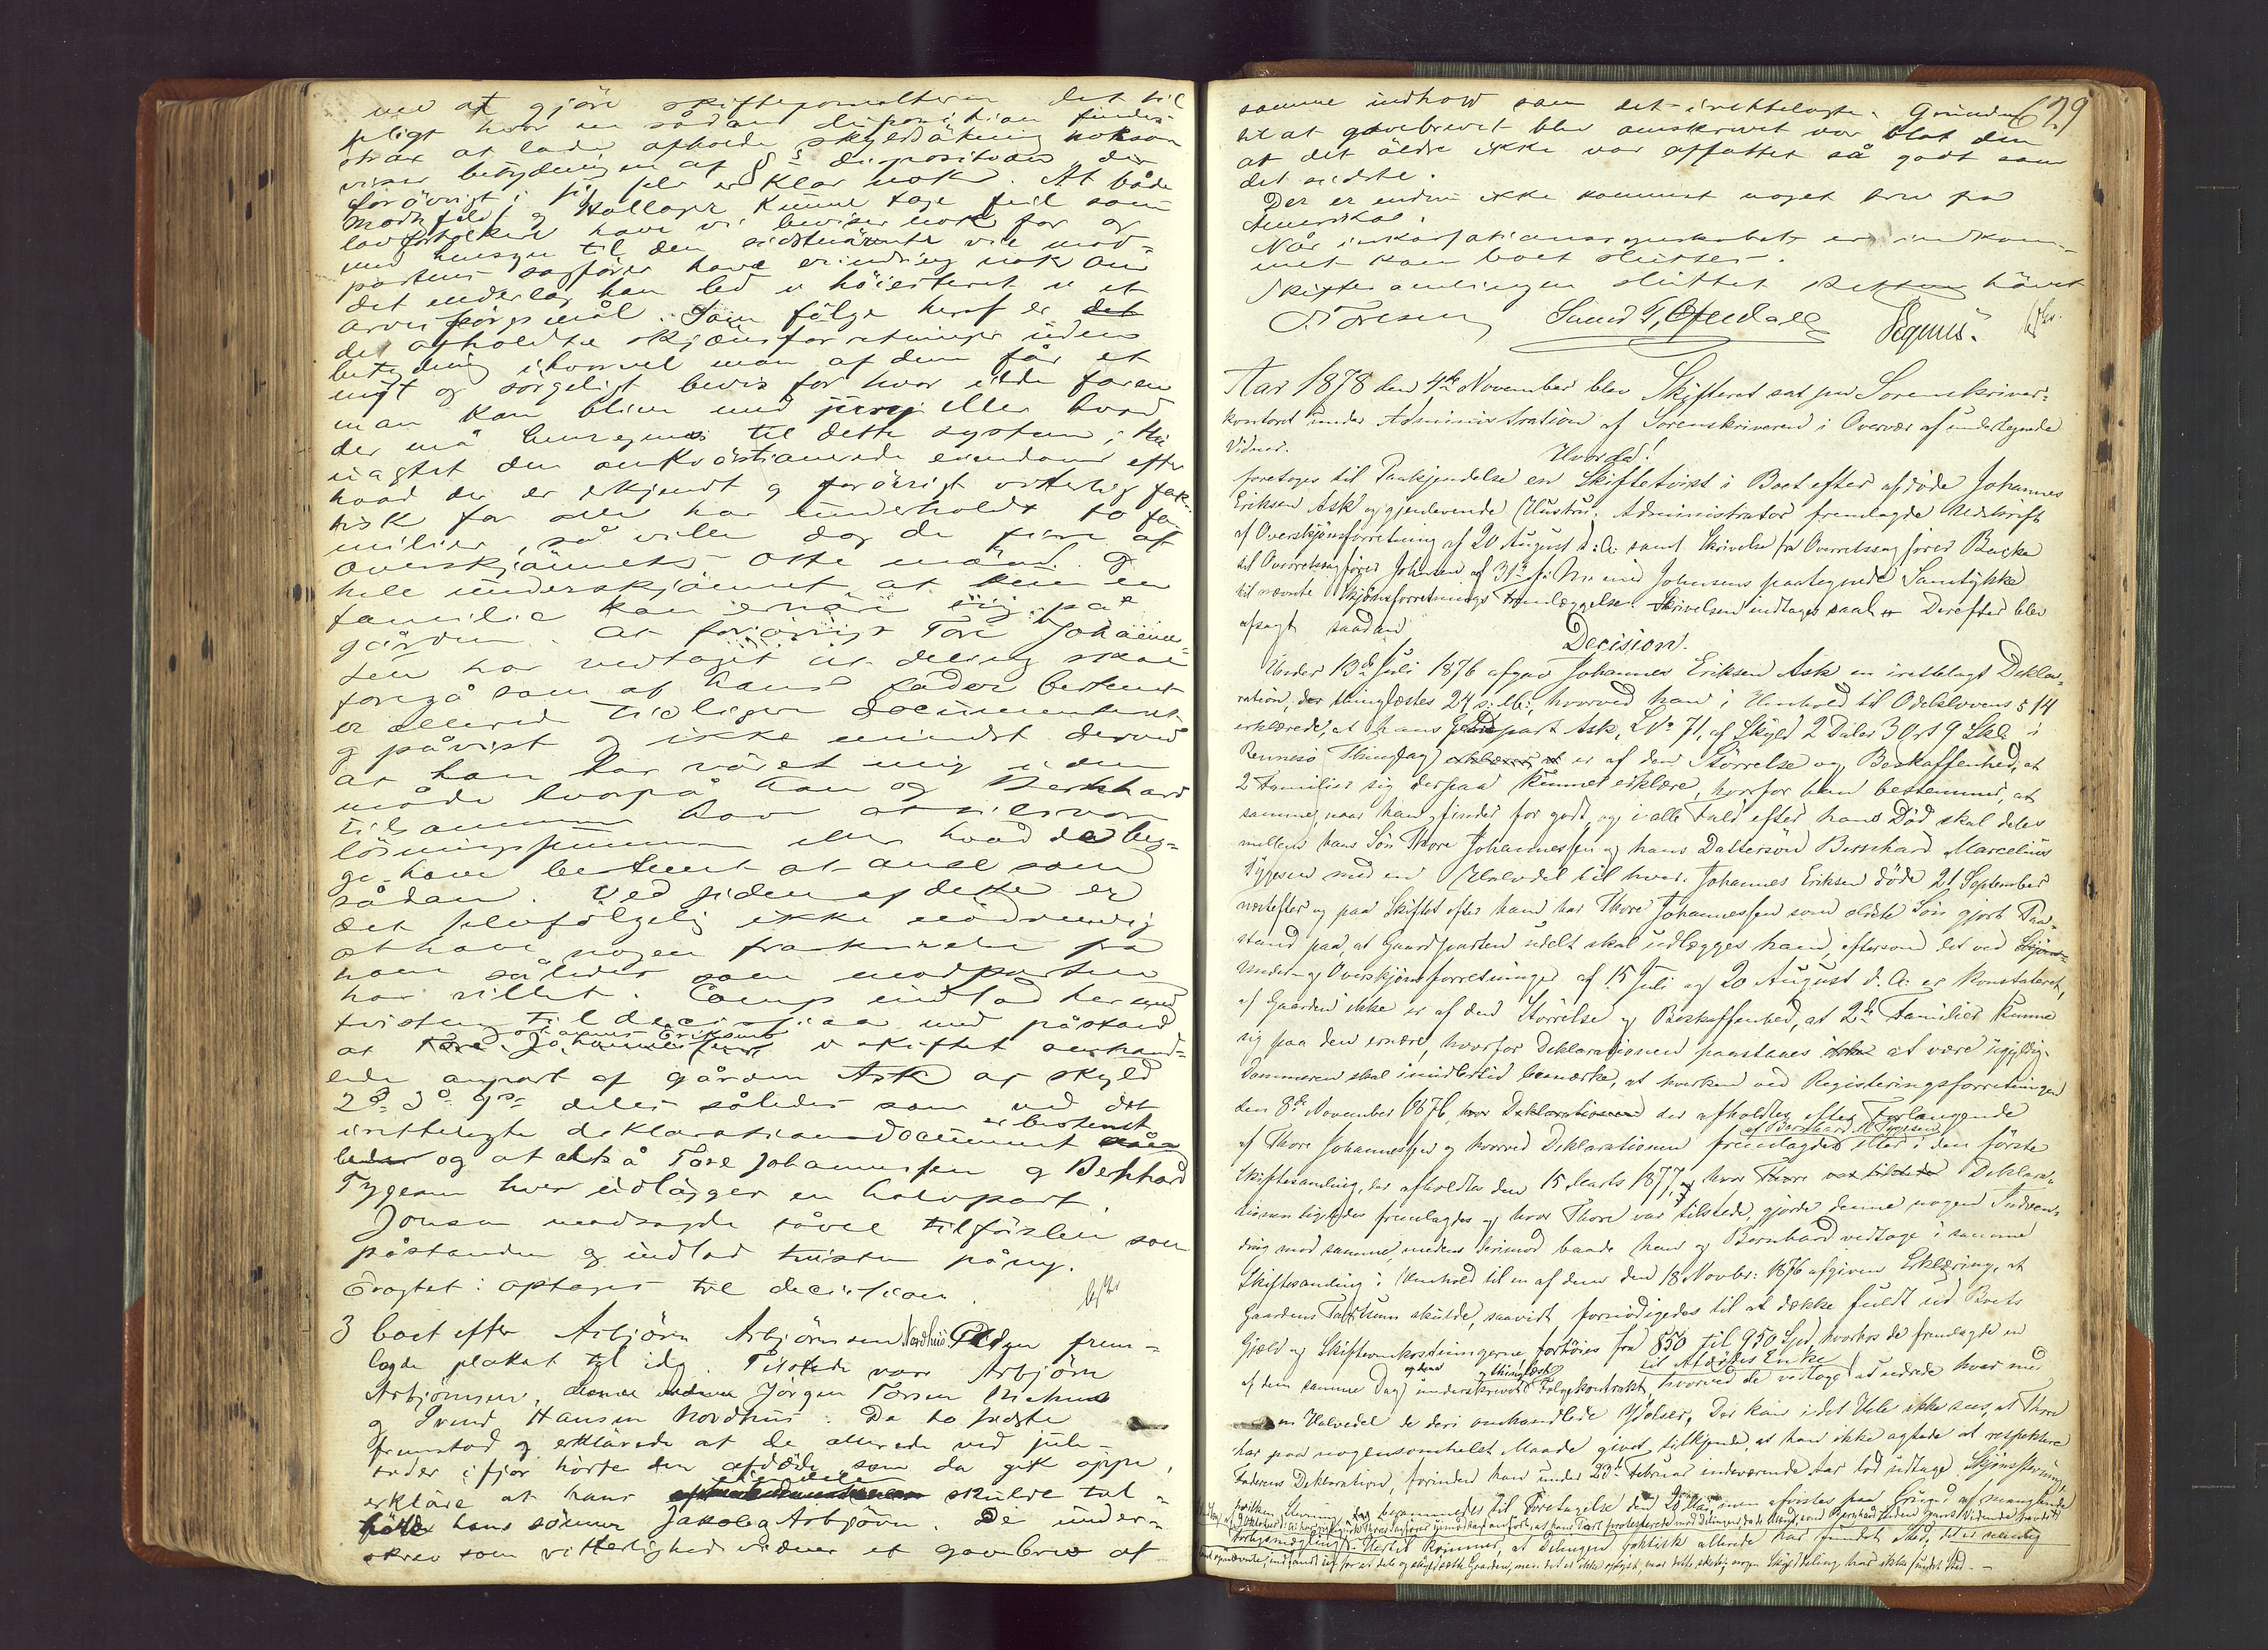 ved at gjöre skifteforvalteren det til
pligt hvor en sådan disposition findes
strax at lade afholde skyldsätning noksom
viser betydningen af §s disposition, der
forövrigt i sig selv er klar nok. At både
og Hallager kunne tage feil som
lovfortolkere have vi beviser nok for og
med hensyn til den sidstnävnte vil mod-
partens sagförer have erindring nok om
det nederlag han led i höiesteret i et
arvespörgsmål. Som fölge heraf er
de afholdte skjönsforretninger uden
betydning ihvorvel man af dem får et
nyt og sörgeligt bevis for hvor ilde faren
man kan blive med jury eller hvad
der må henregnes til dette system;
uagtet den omkvästionerede eiendom efter
hvad der er erkjendt og forövrigt vitterlig fak-
tisk for alle har underholdt to fa-
milier, så ville dog de fire af
overskjönnets otte mänd
hele underskjönnet, at kun en
familie kan ernäre sig på
gården. At forövrigt Tore Johanne-
sen har vedtaget at deling skal
foregå som af hans fader bestemt
er allerede tidligere documenteret
og påvist og ikke mindst derved
at han har väret enig i den
måde hvorpå han og Bernhard
tilsammen have at tilsvare
lösningssummen eller hvad de beg-
ge have bestemt at anse som
sådan. Ved siden af dette er
det selvfölgelig ikke nödvendig
at have nogen fraskrivelse fra
ham således som modparten
har villet. Comp indlod herved
tvisten til decision med påstand
at Johannes Eriksens i skiftet omhand-
lede anpart af gården Ask af skyld
2d 3o 9s deles således som ved det
irettelagte deklarationsdocument er bestemt
og at altså Tore Johannessen og Bernhard
Tygesen hver udlägges en halvpart.
Jonsen modsagde såvel tilförslen som
påstanden og indlod tvisten påny.
Eragtet: optages til decision.
3 boet efter Asbjörn Asbjörnsen Nordhus. frem-
lagde plakat til idag. Tilstede var Asbjörn
Asbjörnsen, Jörgen Torsen
og Svend Hansen Nordhus. De to sidste
fremstod og erklärede at de allerede ved jule-
tider ifjor hörte den afdöde som da gik oppe,
erkläre at hans skulde til-
hans sönner Jakob og Asbjörn. De under-
skrev som vitterlighedsvidner et gavebrev af
629
samme indhold som det irettelagte. Grunden
til at gavebrevet blev omskrevet var blot den
at det äldre ikke var affattet så godt som
det sidste.
Der er endnu ikke kommet noget brev fra
Amerika.
Når inkassationsregnskabet er indkom-
met kan boet sluttes.
Skiftesamlingen sluttet Retten hävet
Aar 1878 den 4de November blev Skifteret sat paa Sorenskriver-
kontoret under Administration af Sorenskriveren i Overvær af undertegnede
Vidner.
Hvorda!
foretoges til Paakjendelse en Skiftetvist i Boet efter afdøde Johannes
Eriksen Ask og gjenlevende Hustru. Administrator fremlagde Udskrift
af Overskjønsforretning af 20 August d: A: samt Skrivelse fra Overretssagfører Backe
til Overretssagfører Johnsen af 31te f: M: med Johnsens paategnede Samtykke
til nævnte Skjønsforretnings Fremlæggelse. Skrivelsen indtages Derefter blev
afsagt saadan
Decision.
Under 13de Juli 1876 afgav Johannes Eriksen Ask en irettelagt Dekla-
ration, der thinglæstes 24 s: M:, hvorved han i Henhold til Odelslovens § 14
erklærede, at hans Gaardpart Ask, L No 71, af Skyld 2 Daler 3 Ort 9 Skl. i
Rennesø Thinglag er af den Størrelse og Beskaffenhed, at
2 Familier sig derpaa kunne, hvorfor han bestemmer, at
samme, naar han finder for godt, og i alle Fald efter hans Død skal deles
mellem hans Søn Thore Johannessen og hans Dattersøn Bernhard Marcelius
Tygesen med en Halvdel til hver. Johannes Eriksen døde 21 September
næstefter og paa Skiftet efter ham har Thore Johannessen som eldste Søn gjort Paa-
stand paa, at Gaardparten udelt skal udlægges ham, eftersom det ved
Under- og Overskjønsforretninger af 15 Juli og 20 August d. A: er konstateret,
at Gaarden ikke er af den Størrelse og Beskaffenhed, at 2de Familier kunne
sig paa den ernære, hvorfor Deklarationen paastaaes at være ugyldig.
Dommeren skal imidlertid bemærke, at hverken ved Registeringsforretningen
den 8de November 1876, der afholdtes efter Forlangende
af Thore Johannessen og hvorved Deklarationen af Bernhard M Tygesen fremlagdes eller i den første
Skiftesamling, der afholdtes den 15 Marts 1877, hvor Deklara-
tionen ligeledes fremlagdes og hvor Thore var tilstede, gjorde denne nogen Indven-
ding mod samme, medens derimod baade han og Bernhard vedtoge i samme
Skiftesamling i Henhold til en af dem den 18 Novbr: 1876 afgiven Erklæring, at
Gaardens Taxtsum skulde, saavidt fornødigedes til at dække fuldt ud Boets
Gjæld og Skifteomkostningerne forhøies fra 850 til 950 Spd, hvorhos de fremlagde en
af dem samme Dag underskreven og thinglæst Folgekontrakt til Afdødes Enke, hvorved de vedtoge at udrede hver med
en Halvdel de deri omhandlede Ydelser. Der kan i det Hele ikke sees, at Thore
har paa nogensomhelst Maade givet tilkjende, at han ikke agtede at respektere
Faderens Deklaration, førinden han under 23de Februar indeværende Aar lod udtage Skjønsstevning,
hvilken Stevning berammedes til Foretagelse den 20 Mai, men afvistes paa Grund af manglende
Forligsmægling. Hertil kommer, at Delingen faktisk allerede har fundet Sted, det er nemlig